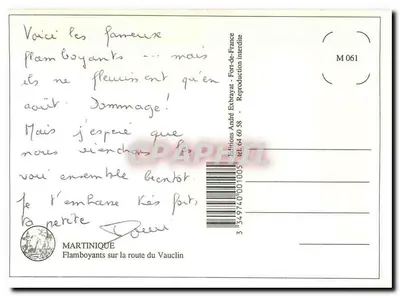 Voici les fameux
flamboyants ... mais
ils ne fleurissent qu'en
août. Dommage!
Mais j'espère que
nous viendrons les
voir ensemble bientôt
Je t'embrasse très fort
ta petite
MARTINIQUE
Flamboyants sur la route du Vauclin
Editions André Exbrayat - Fort-de-France
tél. 64 60 58 - Reproduction interdite
3 349740 001005
M 061